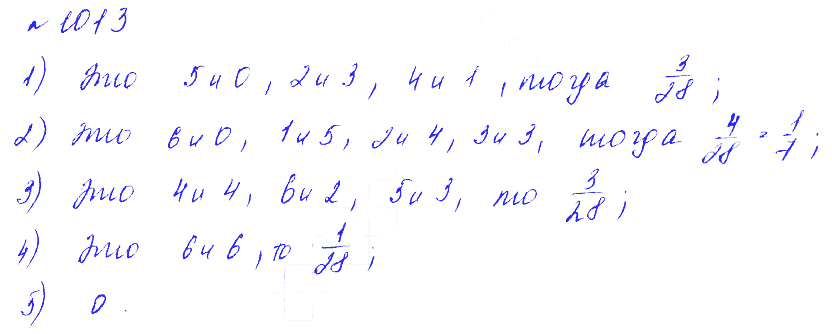 № 1013
1) Это 5 и 0, 2 и 3, 4 и 1, тогда 3/28;
2) Это 6 и 0, 1 и 5, 2 и 4, 3 и 3, тогда 4/28 = 1/7;
3) Это 4 и 4, 6 и 2, 5 и 3, то 3/28;
4) Это 6 и 6, то 1/28;
5) 0.